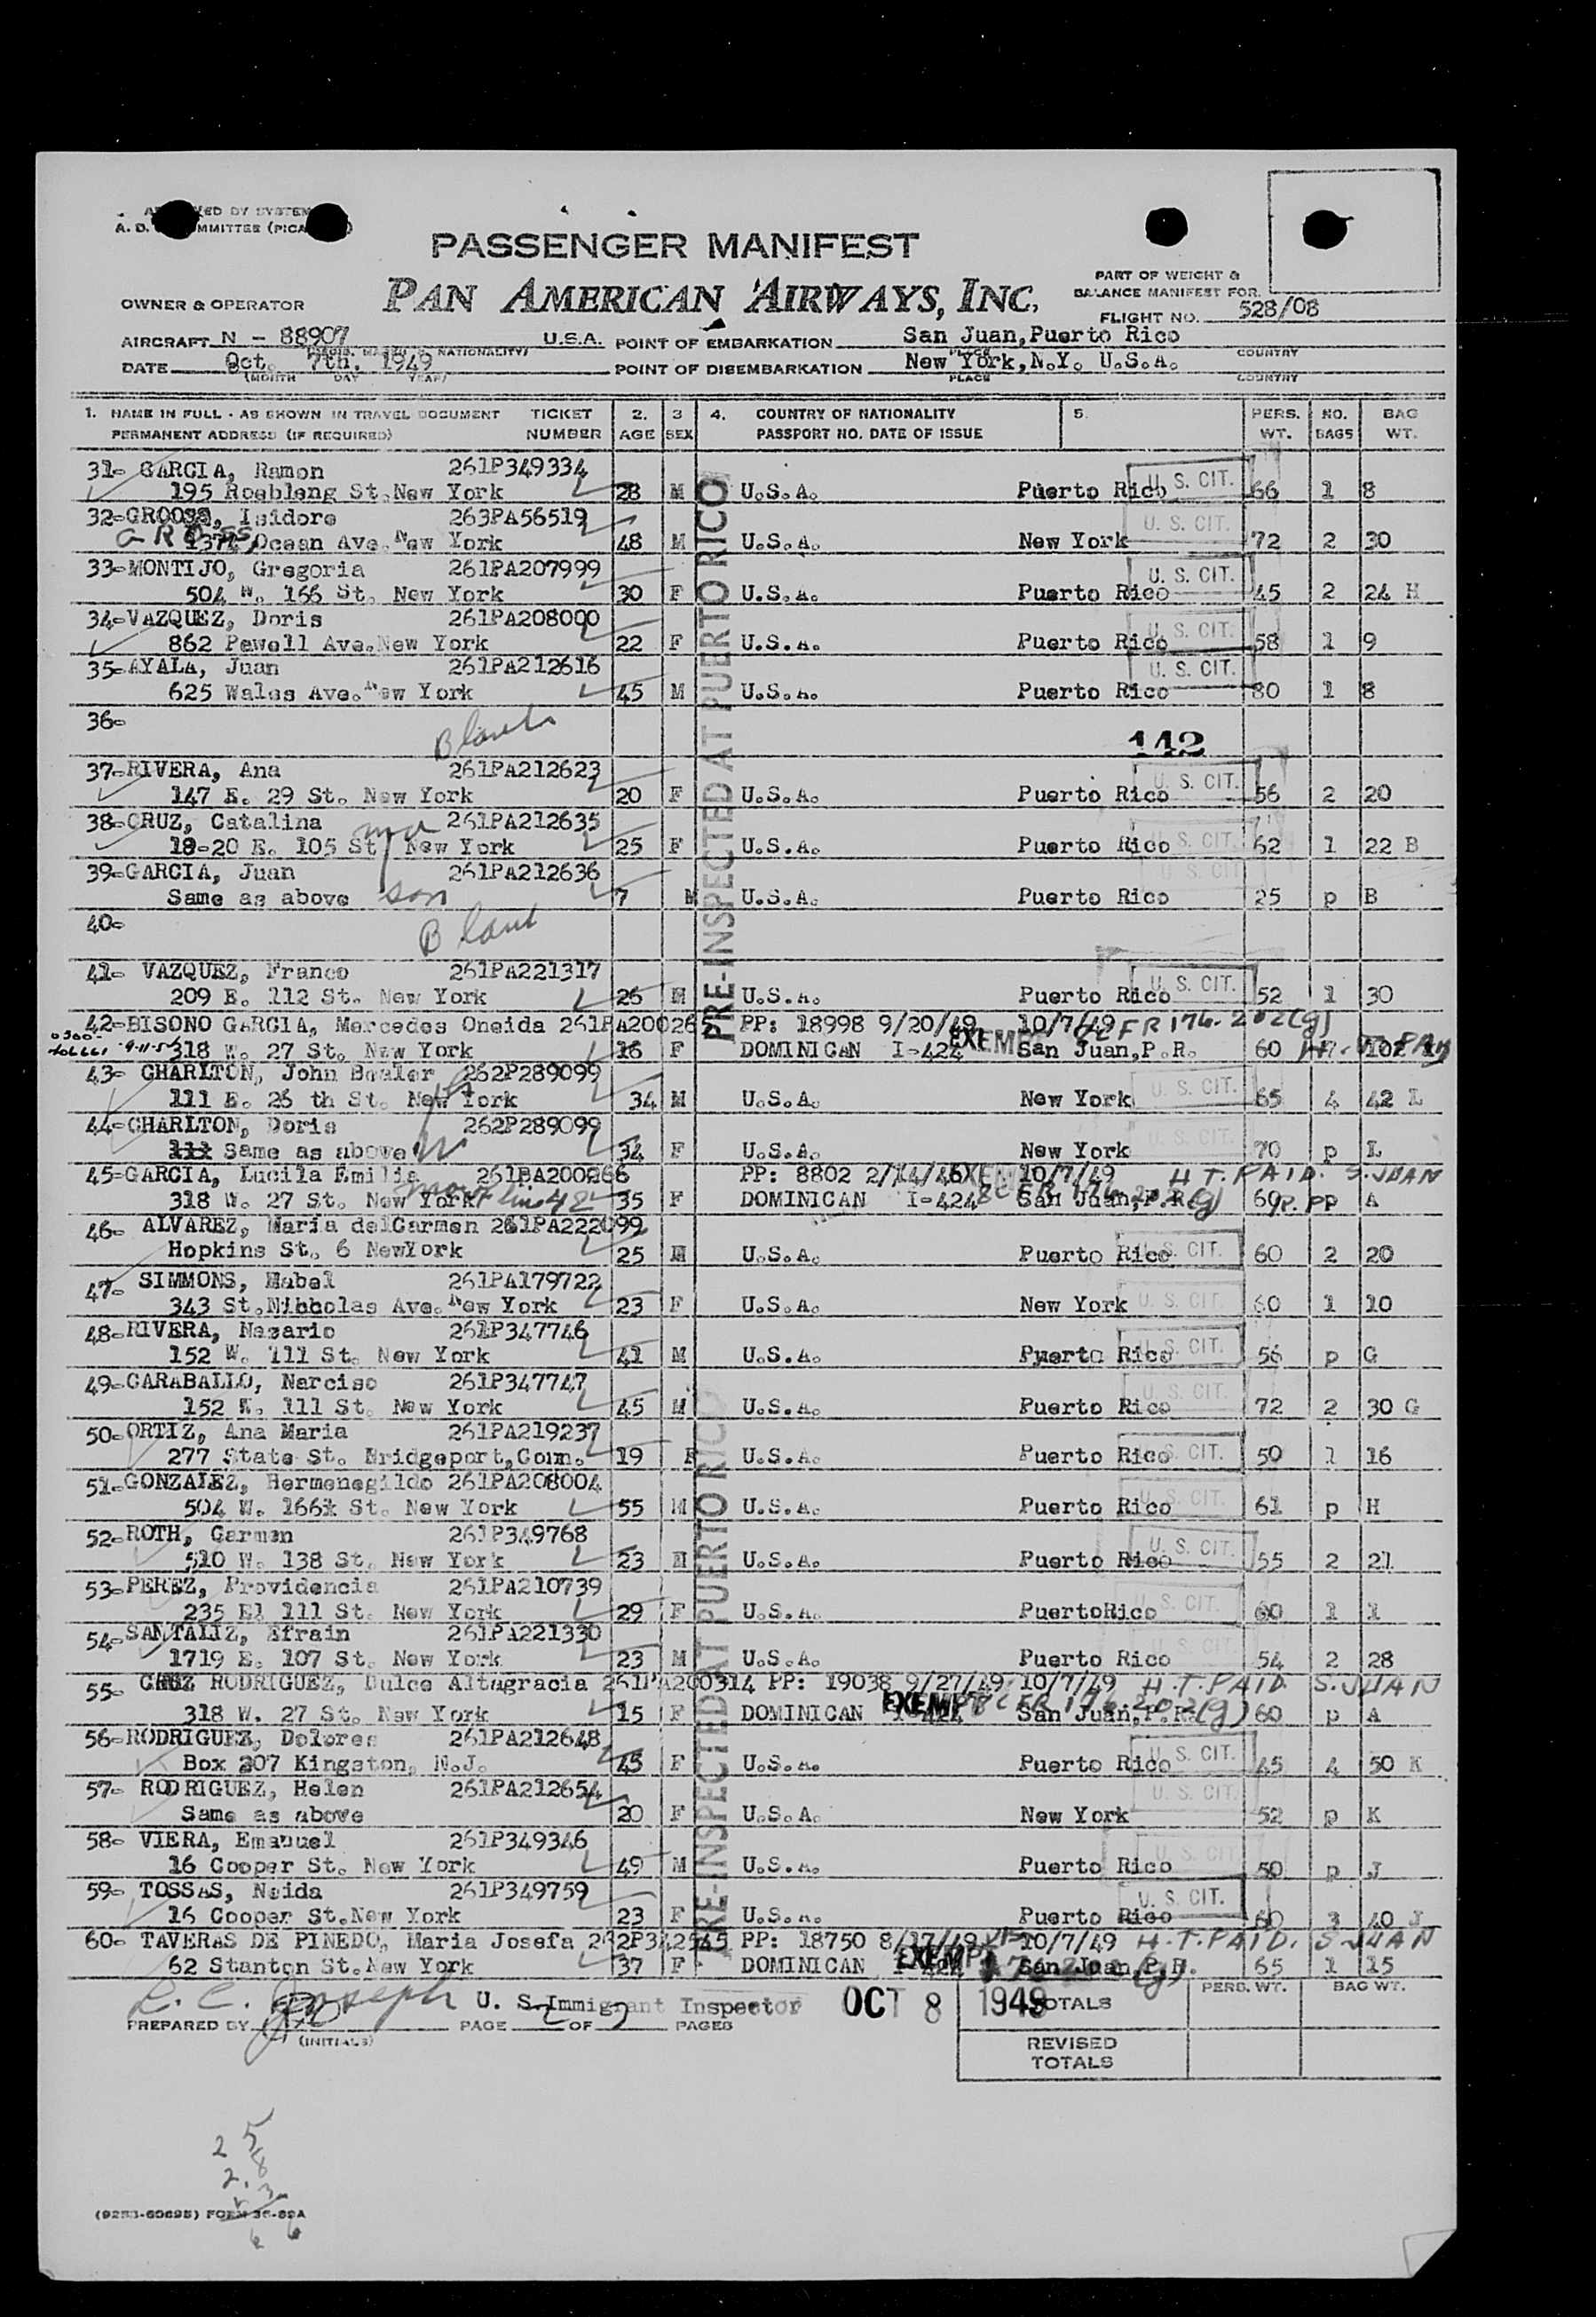 PASSENGER MANIFEST
PAN AMERICAN AIRWAYS, INC.
PART OF WEIGHT &
BALANCE MANIFEST FOR
OWNER & OPERATOR
FLIGHT NO. 528/08
AIRCRAFT N - 88907 U.S.A. POINT OF EMBARKATION San Juan, Puerto Rico
PLACE COUNTRY
DATE Oct. 7th. 1949 POINT OF DISEMBARKATION New York, N.Y. U.S.A.
(MONTH DAY YEAR) PLACE COUNTRY
1. NAME IN FULL - AS SHOWN IN TRAVEL DOCUMENT TICKET 2. 3 4. COUNTRY OF NATIONALITY 5. PERS. NO. BAG
PERMANENT ADDRESS (IF REQUIRED) NUMBER AGE SEX PASSPORT NO. DATE OF ISSUE WT. BAGS WT.
PRE-INSPECTED AT PUERTO RICO
31- GARCIA, Ramon 261P349334 U. S. CIT.
195 Roebleng St.New York 28 M U.S.A. Puerto Rico 66 1 8
32-GROOSS, Isidore 263PA56519 U. S. CIT.
Ocean Ave. New York 48 M U.S.A. New York 72 2 30
33-MONTIJO, Gregoria 261PA207999 U. S. CIT.
504 W. 166 St. New York 30 F U.S.A. Puerto Rico 45 2 24 H
34-VAZQUEZ, Doris 261PA208000 U. S. CIT.
862 Pewell Ave.New York 22 F U.S.A. Puerto Rico 58 1 9
35-AYALA, Juan 261PA212616 U. S. CIT.
625 Wales Ave. New York 45 M U.S.A. Puerto Rico 80 1 8
36- Blank 142
37-RIVERA, Ana 261PA212623 U. S. CIT.
147 E. 29 St. New York 20 F U.S.A. Puerto Rico 56 2 20
38-CRUZ, Catalina 261PA212635
18-20 E. 105 St New York 25 F U.S.A. Puerto Rico U. S. CIT. 62 1 22 B
39-GARCIA, Juan 261PA212636 U. S. CIT
Same as above son 7 M U.S.A. Puerto Rico 25 p B
40- Blank
41- VAZQUEZ, Franco 261PA221317 U. S. CIT.
209 E. 112 St. New York 26 M U.S.A. Puerto Rico 52 1 30
42-BISONO GARCIA, Mercedes Oneida 261PA200265 PP: 18998 9/20/49 10/7/49 8CFR 176.202(g)
318 W. 27 St. New York 16 F DOMINICAN I-424 EXEMPT San Juan,P.R. 60
43- CHARLTON, John Bealer 262P289099
111 E. 26 th St. New York 34 M U.S.A. New York U. S. CIT. 65 4 42 L
44-CHARLTON, Doris 262P289099 U. S. CIT.
Same as above W 34 F U.S.A. New York 70 p L
45-GARCIA, Lucila Emilia 261PA200266 PP: 8802 2/14/46 10/7/49 H T. PAID. S. JUAN
318 W. 27 St. New York 35 F DOMINICAN I-424 San Juan,P.R. 60 p A
46- ALVAREZ, Maria delCarmen 261PA222099
Hopkins St. 6 NewYork 25 M U.S.A. Puerto Rico U. S. CIT. 60 2 20
47- SIMMONS, Mabel 261PA179722
343 St.Nibholas Ave. New York 23 F U.S.A. New York U. S. CIT. 60 1 10
48-RIVERA, Nazario 261P347746
152 W. 111 St. New York 41 M U.S.A. Puerto Rico U. S. CIT. 56 p G
49-CARABALLO, Narciso 261P347747 U. S. CIT.
152 W. 111 St. New York 45 M U.S.A. Puerto Rico 72 2 30 G
50-ORTIZ, Ana Maria 261PA219237
277 State St. Bridgeport,Conn. 19 F U.S.A. Puerto Rico U. S. CIT. 50 1 16
51-GONZALEZ, Hermenegildo 261PA208004 U. S. CIT.
504 W. 166 St. New York 55 M U.S.A. Puerto Rico 61 p H
52-ROTH, Carmen 261P349768 U. S. CIT.
510 W. 138 St. New York 23 M U.S.A. Puerto Rico 55 2 21
53-PEREZ, Providencia 261PA210739 U. S. CIT.
235 El 111 St. New York 29 F U.S.A. PuertoRico 60 1 1
54-SANTALIZ, Efrain 261PA221330 U. S. CIT.
1719 E. 107 St. New York 23 M U.S.A. Puerto Rico 54 2 28
55- CRUZ RODRIGUEZ, Dulce Altagracia 261PA200314 PP: 19038 9/27/49 10/7/49 H.T.PAID S.JUAN
318 W. 27 St. New York 15 F DOMINICAN I-424 EXEMPT 8CFR 176.202(g) San Juan,P.R. 60 p A
56-RODRIGUEZ, Dolores 261PA212648 U. S. CIT.
Box 207 Kingston, N.J. 45 F U.S.A. Puerto Rico 45 4 50 K
57- RODRIGUEZ, Helen 261PA212654 U. S. CIT.
Same as above 20 F U.S.A. New York 52 p K
58- VIERA, Emanuel 261P349346 U. S. CIT
16 Cooper St. New York 49 M U.S.A. Puerto Rico 50 p J
59- TOSSAS, Neida 261P349759 U. S. CIT.
16 Cooper St.New York 23 F U.S.A. Puerto Rico 60 3 40 J
60- TAVERAS DE PINEDO, Maria Josefa 262P342545 PP: 18750 8/17/49 10/7/49 H.T.PAID. S.JUAN
62 Stanton St.New York 37 F DOMINICAN I-424 EXEMPT San Juan,P.R. 65 1 15
U. S. Immigrant Inspector OCT 8 1949 TOTALS PERS. WT. BAG WT.
PREPARED BY PAGE 2 OF 2 PAGES
(INITIALS)
REVISED
TOTALS
FORM 36-89A